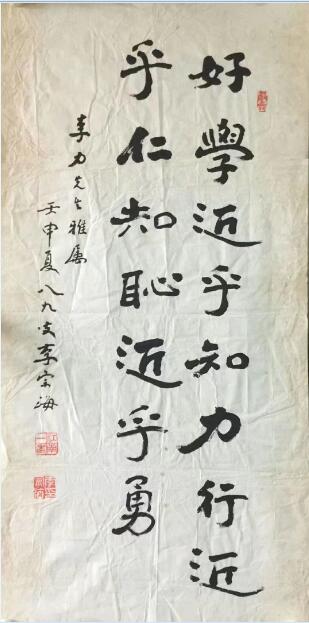 好學近乎知力行近
乎仁知恥近乎勇
李力先生雅屬
壬申夏八九叟李宗海